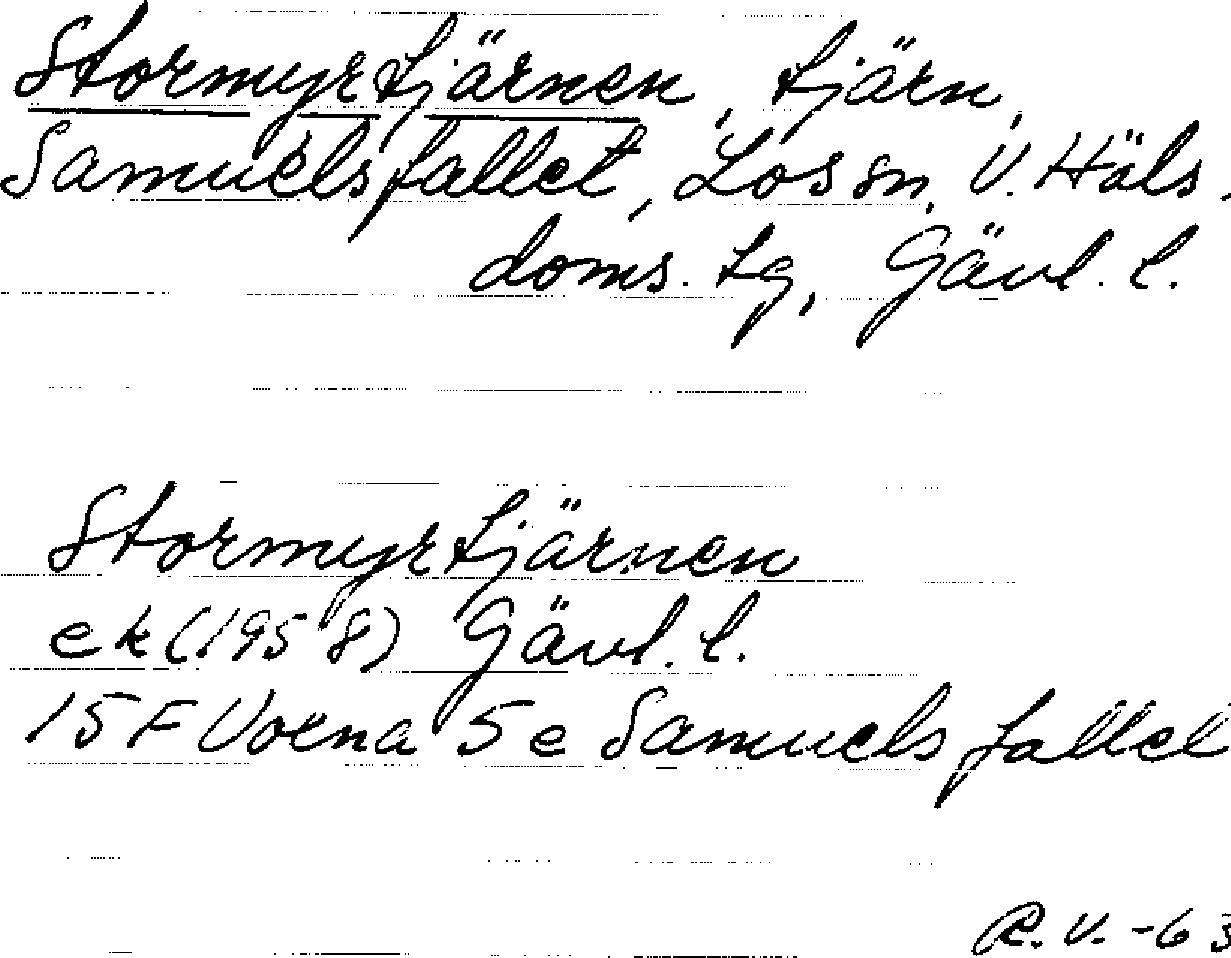 Stormyrtjärnen, tjärn,
Samuelsfallet, Los sn, V. Häls.
doms. tg, Gävl. l.
Stormyrtjärnen
ek (1958) Gävl. l.
15 F Voxna 5 e Samuelsfallet
R. V. -63